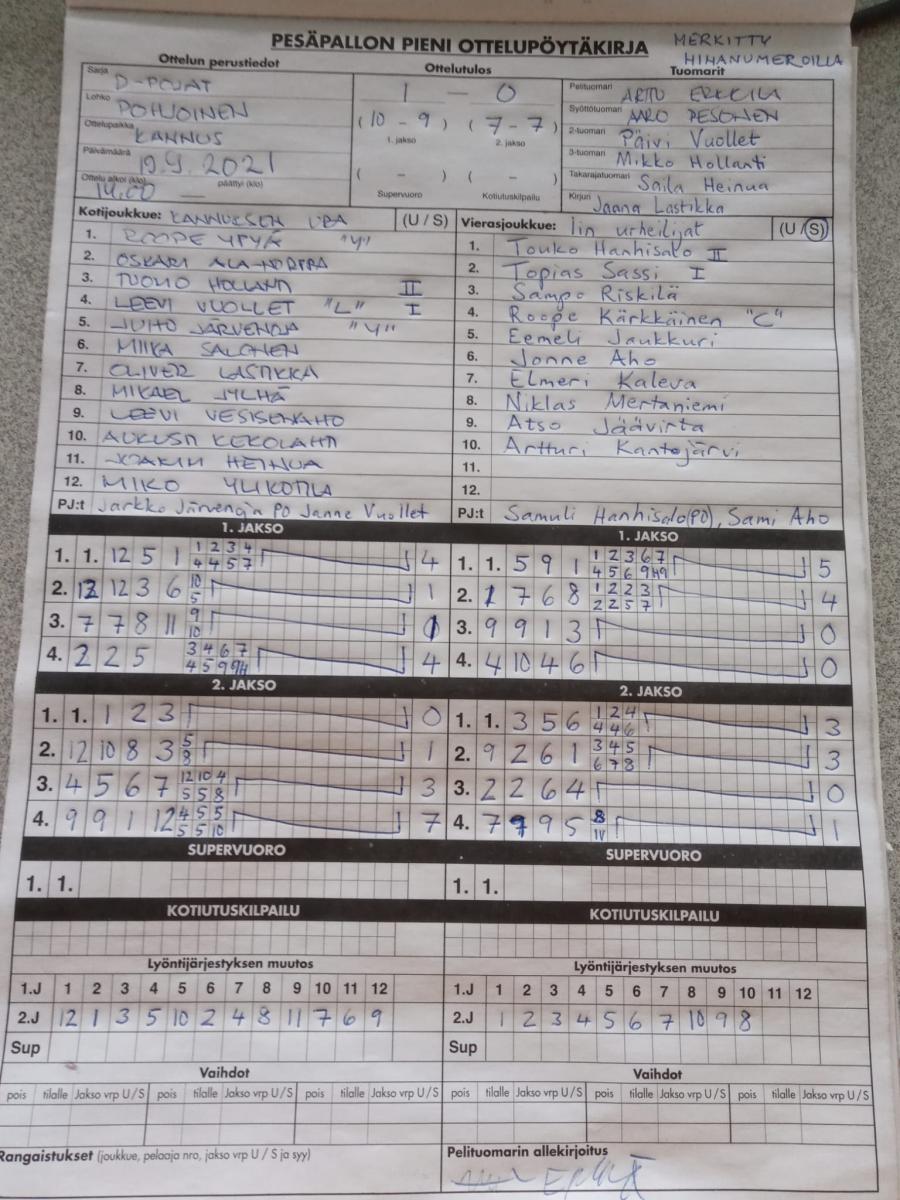 PESÄPALLON PIENI OTTELUPÖYTÄKIRJA
MERKITTY
HIHANUMEROILLA
Ottelun perustiedot
Sarja D-POJAT
Lohko POHJOINEN
Ottelupaikka KANNUS
Päivämäärä 19.9.2021
Ottelu alkoi (klo) 14.00 päättyi (klo) —
Ottelutulos
1 — 0
(10 - 9) (7 - 7)
1. jakso 2. jakso
( - ) ( - )
Supervuoro Kotiutuskilpailu
Tuomarit
Pelituomari ARTTU ERKKILÄ
Syöttötuomari AARO PESONEN
2-tuomari Päivi Vuollet
3-tuomari Mikko Hollanti
Takarajatuomari Saila Heinua
Kirjuri Jaana Lastikka
Kotijoukkue: KANNUKSEN URA (U / S)
1. ROOPE YPYÄ "Y"
2. OSKARI ALA-NORPPA
3. TUOMO HOLLANTI II
4. LEEVI VUOLLET "L" I
5. JUHO JÄRVENPÄÄ "Y"
6. MIIKA SALONEN
7. OLIVER LASTIKKA
8. MIKAEL JYLHÄ
9. LEEVI VESISENAHO
10. AUKUSTI KEKOLAHTI
11. JOAKIM HEINUA
12. MIKO YLIKOTILA
PJ:t Jarkko Järvenpää PO Janne Vuollet
Vierasjoukkue: Iin urheilijat (U / S)
1. Touko Hanhisalo II
2. Topias Sassi I
3. Sampo Riskilä
4. Roope Kärkkäinen "C"
5. Eemeli Jaukkuri
6. Jonne Aho
7. Elmeri Kaleva
8. Niklas Mertaniemi
9. Atso Jäävirta
10. Artturi Kantojärvi
11.
12.
PJ:t Samuli Hanhisalo(PO), Sami Aho
1. JAKSO
1. 1. 12 5 1 1 2 3 4 4
4 4 5 7
2. 12 12 3 6 10 1
5
3. 7 7 8 11 9
10
4. 2 2 5 3 4 6 7 4
1. JAKSO
1. 1. 5 9 1 1 2 3 6 7 5
2. 1 7 6 8 1 2 2 3 4
2 2 5 7
3. 9 9 1 3 0
4. 4 10 4 6 0
2. JAKSO
1. 1. 1 2 3 0
2. 12 10 8 3 5 1
8
3. 4 5 6 7 12 10 4 3
5 5 8
4. 9 9 1 12 4 5 5 7
5 5 10
2. JAKSO
1. 1. 3 5 6 1 2 4 3
4 4 6
2. 9 2 6 1 3 4 5 3
6 7 8
3. 2 2 6 4 0
4. 7 9 9 5 8 1
SUPERVUORO
1. 1.
SUPERVUORO
1. 1.
KOTIUTUSKILPAILU
KOTIUTUSKILPAILU
Lyöntijärjestyksen muutos
1.J 1 2 3 4 5 6 7 8 9 10 11 12
2.J 12 1 3 5 10 2 4 8 11 7 6 9
Sup
Lyöntijärjestyksen muutos
1.J 1 2 3 4 5 6 7 8 9 10 11 12
2.J 1 2 3 4 5 6 7 10 9 8
Sup
Vaihdot
pois tilalle Jakso vrp U / S pois tilalle Jakso vrp U / S pois tilalle Jakso vrp U / S
Vaihdot
pois tilalle Jakso vrp U / S pois tilalle Jakso vrp U / S pois tilalle Jakso vrp U / S
Rangaistukset (joukkue, pelaaja nro, jakso vrp U / S ja syy)
Pelituomarin allekirjoitus